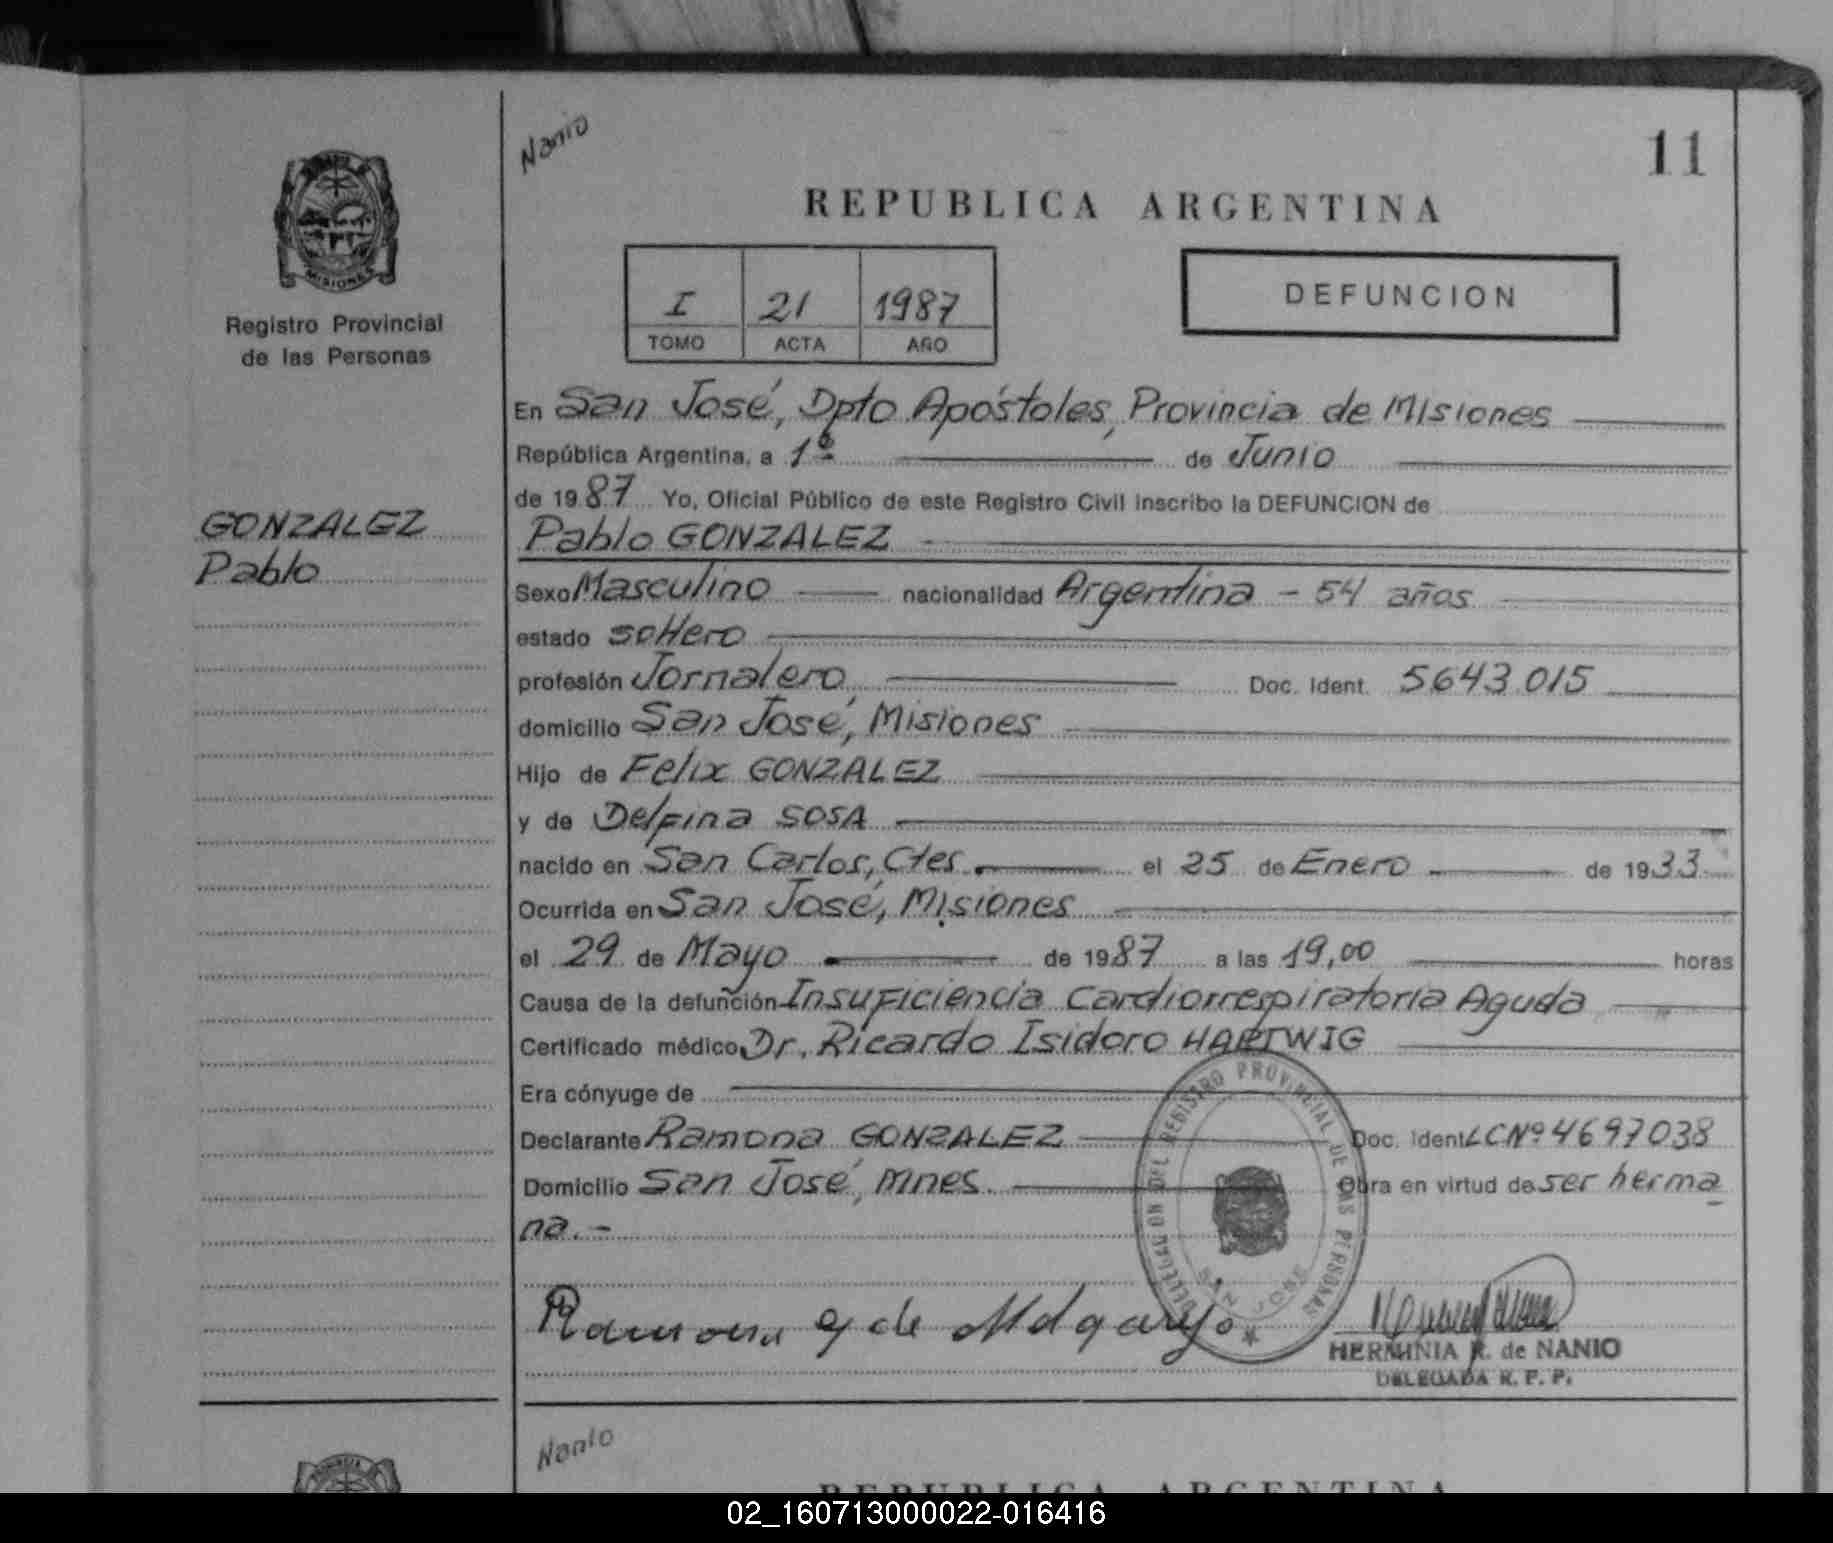 Nanio
11
REPUBLICA ARGENTINA
MISIONES
Registro Provincial
de las Personas
I 21 1987
TOMO ACTA AÑO
DEFUNCION
En San José, Dpto Apóstoles, Provincia de Misiones
República Argentina, a 1º de Junio
de 1987 Yo, Oficial Público de este Registro Civil inscribo la DEFUNCION de
GONZALEZ
Pablo
Pablo GONZALEZ
Sexo Masculino nacionalidad Argentina - 54 años
estado soltero
profesión Jornalero Doc. Ident. 5643.015
domicilio San José, Misiones
Hijo de Felix GONZALEZ
y de Delfina SOSA
nacido en San Carlos, Ctes. el 25 de Enero de 1933
Ocurrida en San José, Misiones
el 29 de Mayo de 1987 a las 19,00 horas
Causa de la defunción Insuficiencia Cardiorrespiratoria Aguda
Certificado médico Dr. Ricardo Isidoro HARTWIG
Era cónyuge de
Declarante Ramona GONZALEZ Doc. Ident LC Nº 4697038
Domicilio San José, Mnes. Obra en virtud de ser herma
na.-
DELEGACION DEL REGISTRO PROVINCIAL DE LAS PERSONAS
SAN JOSE
Ramona g de
HERMINIA R. de NANIO
DELEGADA R. P. P.
Nanio
REPUBLICA ARGENTINA
02_160713000022-016416